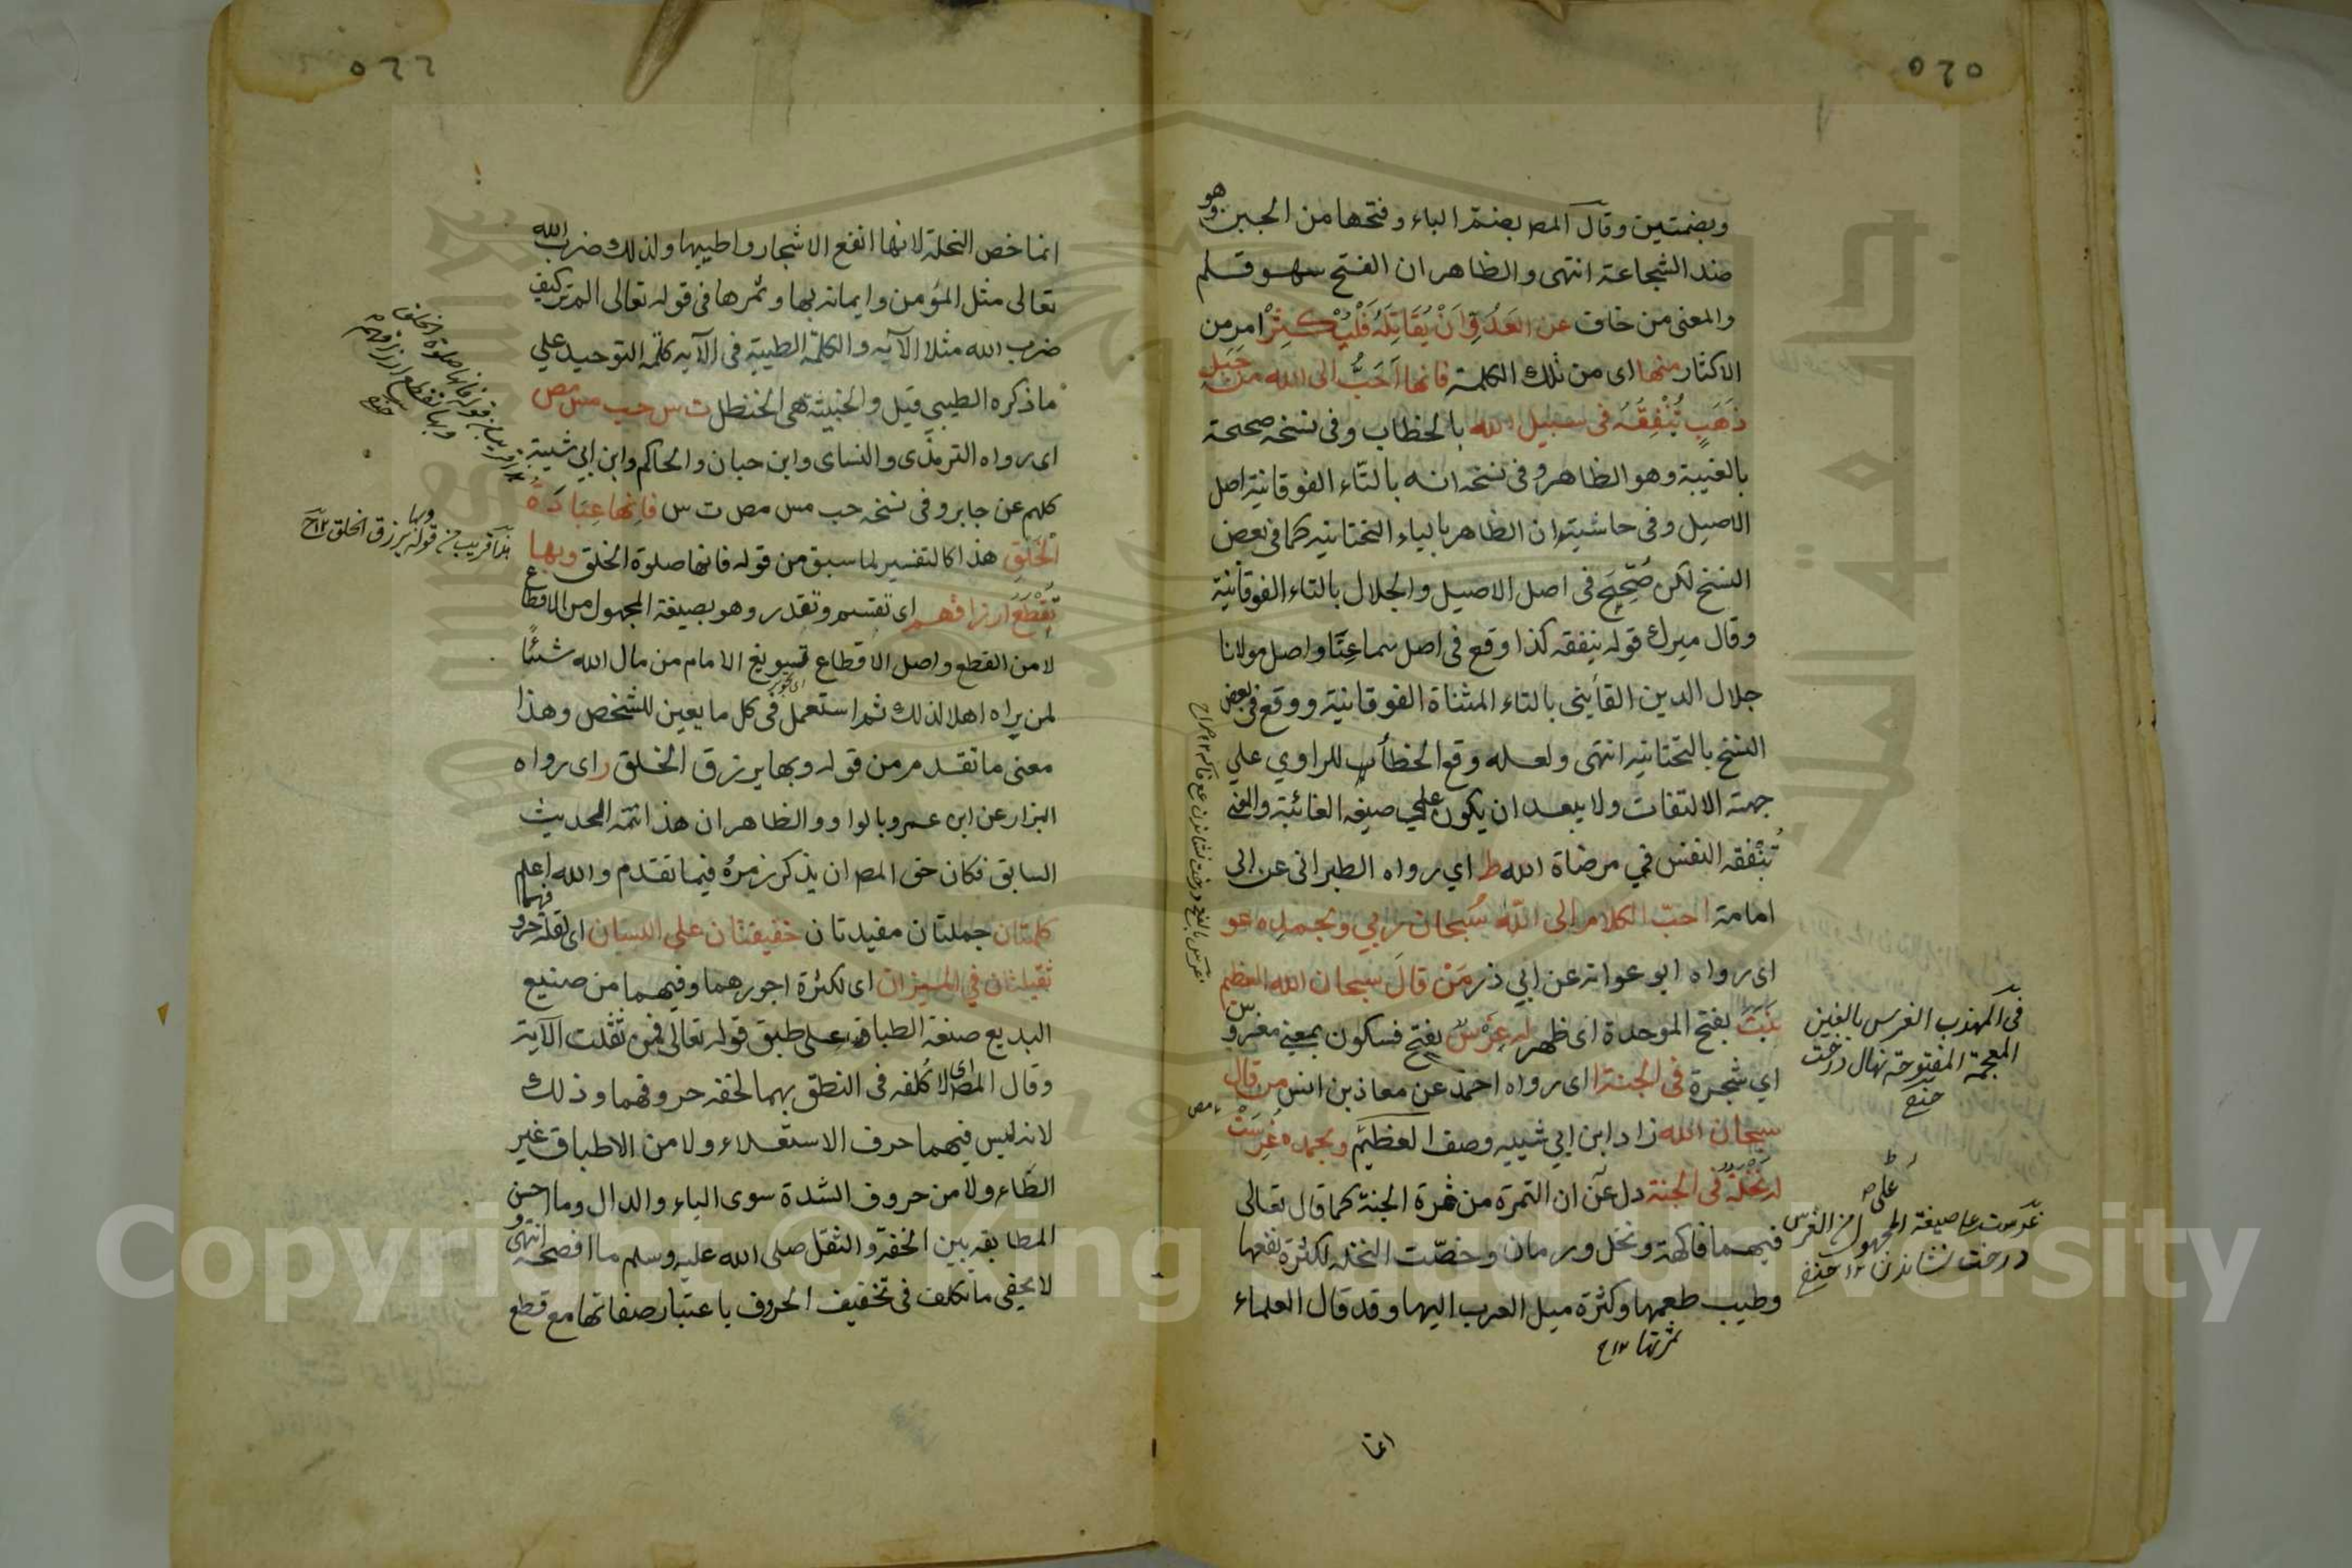 ٥٢٥
وبضمتين وقال المص بضم الباء وفتحها من الجبن وهو
ضد الشجاعة انتهى والظاهر ان الفتح سهو قلم
والمعنى من خاف عن العَدُوِّ اَنْ يُقَاتِلَهُ فَلْيُكْثِرْ امر من
الاكثار منها اى من تلك الكلمة فانها اَحَبُّ الى الله من جَبَلِ
ذَهَبٍ يُنْفِقُهُ فى سبيل الله بالخطاب وفى نسخه صحيحة
بالغيبة وهو الظاهر وفى نسخه انه بالتاء الفوقانية اصل
الاصيل وفى حاشيته ان الظاهر بالياء التحتانيه كما فى بعض
النسخ لكن صُحِّحَ فى اصل الاصيل والجلال بالتاء الفوقانية
وقال ميرك قوله ينفقه كذا وقع فى اصل سماعِنَا واصل مولانا
جلال الدين القاينى بالتاء المثناة الفوقانية ووقع فى بعض
النسخ بالتحتانيه انتهى ولعله وقع الخطاب للراوي علي
جهة الالتفات ولا يبعد ان يكون علي صيغه الغائبة والمعنى
تُنْفقه النفس في مرضاة الله ط اي رواه الطبرانى عن ابى
امامة احبّ الكلام الى اللّه سُبحان ربي وبحمده عو
اى رواه ابو عوانه عن ابي ذر مَنْ قالَ سبحان الله العظيم
نَبَتَ بفتح الموحدة اى ظهر له غَرْسٌ بفتح فسكون بمعنى مغروس
اي شجرة فى الجنة ا اى رواه احمد عن معاذ بن انس من قال
سبحان الله زاد ابن ابي شيبه وصف العظيم وبحمده غُرِسَتْ
له نَخْلَةٌ فى الجنة دل عَلى ان التمرة من ثمرة الجنة كما قال تعالى
فيهما فاكهة ونخل ورمان وخصّت النخله لكثرة نفعها
وطيب طعمها وكثرة ميل العرب اليها وقد قال العلماء
ثمرتها ١٢ ح
انما
فى المهذب الغرس بالغين
المعجمة المفتوحة نهال درخت
غرست على صيغة المجهول من الغرس
درخت نشاندن ١٢
٥٢٦
انما خص النخلة لانها انفع الاشجار واطيبها ولذلك ضرب الله
تعالى مثل المؤمن وايمانه بها وثمرها فى قوله تعالى الم تر كيف
ضرب الله مثلا الآيه والكلمة الطيبة فى الآيه كلمة التوحيد علي
ما ذكره الطيبي قيل والخبيثة هى الحنظل ت س حب مس مص
اى رواه الترمذى والنساى وابن حبان والحاكم وابن ابي شيبة
كلهم عن جابر وفى نسخه حب مس مص ت س فانها عِبَادَةُ
الخَلْقِ هذا كالتفسير لما سبق من قوله فانها صلوة الخلق وبها
تُقْطَعُ ارزاقهم اى تقتسم وتقدر وهو بصيغة المجهول من الاقطاع
لا من القطع واصل الاقطاع تسويغ الامام من مال الله شيئًا
لمن يراه اهلا لذلك ثم استعمل فى كل ما يعين للشخص وهذا
معنى ما تقدم من قوله وبها يرزق الخلق ر اى رواه
البزار عن ابن عمرو بالواو والظاهر ان هذا تتمه الحديث
السابق فكان حق المص ان يذكر رمزهُ فيما تقدم والله اعلم
كلمتان جملتان مفيدتان خفيفتان علي اللسان اى لقلة حروفهما
ثقيلتان في الميزان اى لكثرة اجورهما وفيهما من صنيع
البديع صنعة الطباق علي طبق قوله تعالى فمن ثقلت الآية
وقال المص اى لا كُلفه فى النطق بهما لخفه حروفهما وذلك
لانه ليس فيهما حرف الاستعلاء ولا من الاطباق غير
الظاء ولا من حروف الشدة سوى الباء والدال وما احسن
المطابقه بين الخفة والثقل صلى الله عليه وسلم ما افصحه انتهى و
لا يخفى ما تكلف فى تخفيف الحروف باعتبار صفاتها مع قطع
هذا قريب من قوله وبها يرزق الخلق ١٢ ح
Copyright © King Saud University